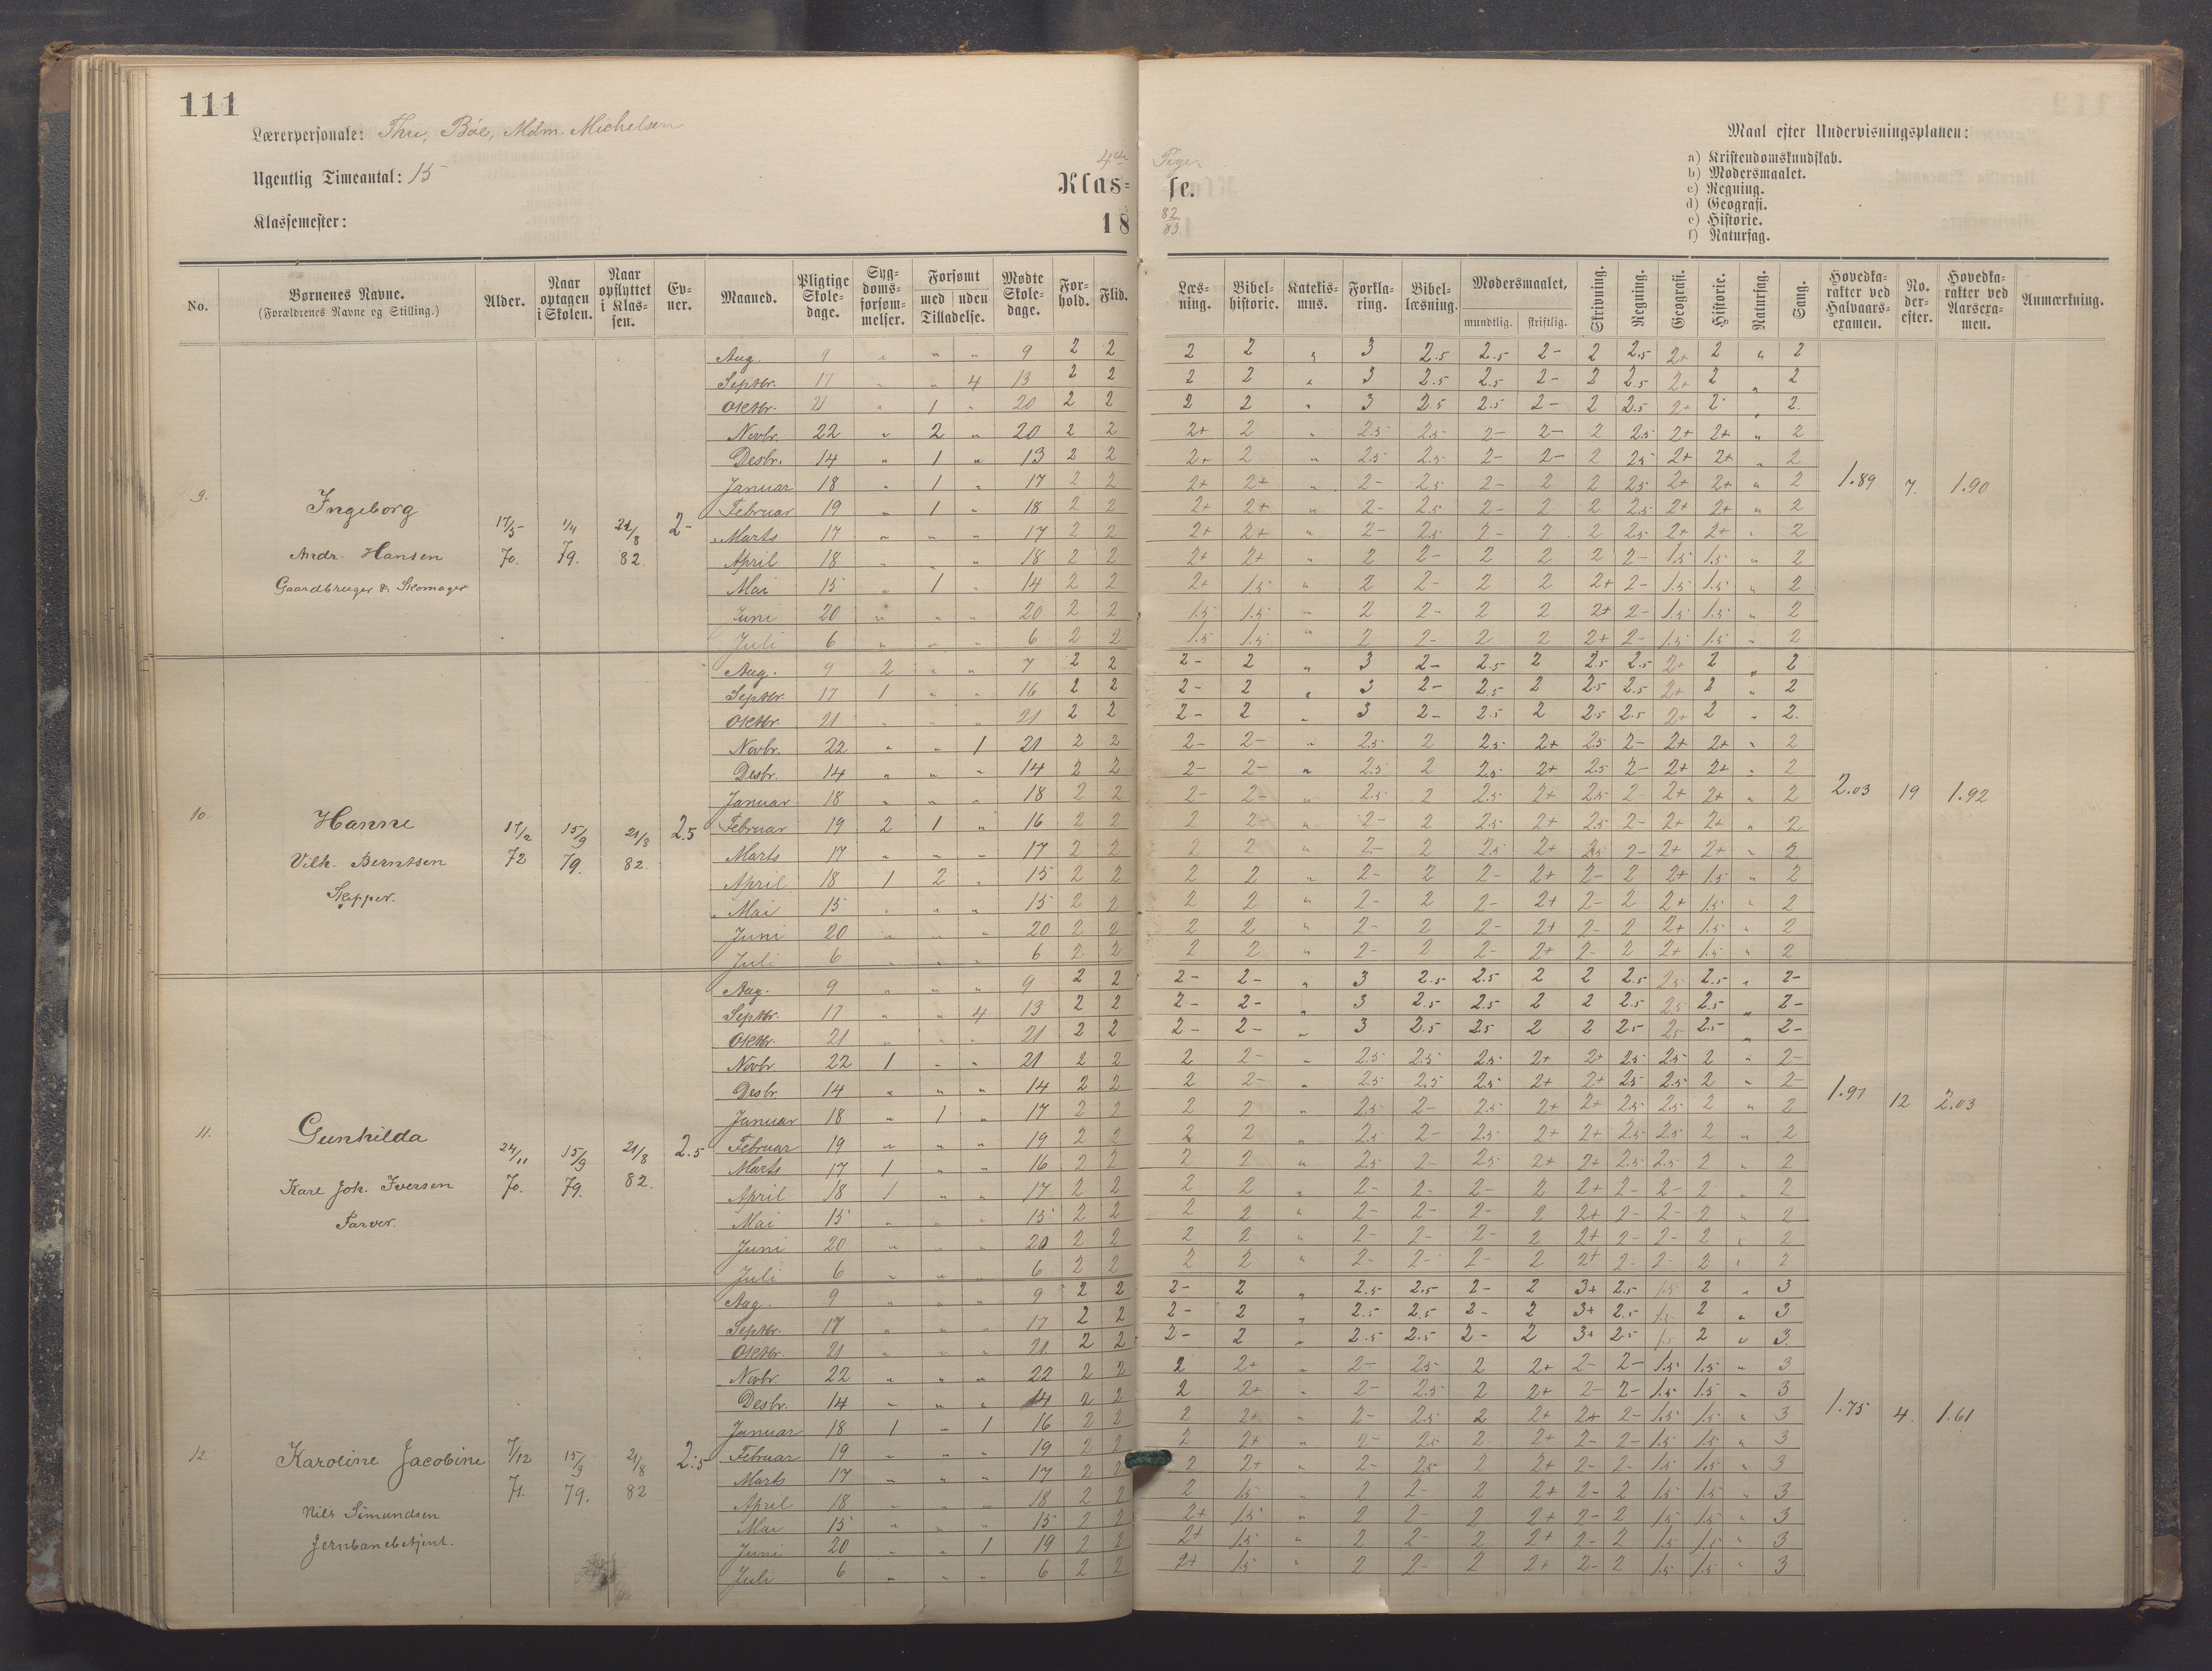 111
Lærerpersonale: Thu, Bóe, Mdm. Michelsen
Ugentlig Timeantal: 15
Klassemester:
4de Pige
Klas- se.
18 82/83.
Maal efter Undervisningsplanen:
a) Kristendomskundskab.
b) Modersmaalet.
c) Regning.
d) Geografi.
e) Historie.
f) Naturfag.
No. | Børnenes Navne. (Forældrenes Navne og Stilling.) | Alder. | Naar optagen i Skolen. | Naar opflyttet i Klassen. | Evner. | Maaned. | Pligtige Skoledage. | Sygdomsforsømmelser. | Forsømt med Tilladelse. | Forsømt uden Tilladelse. | Mødte Skoledage. | Forhold. | Flid. | Læsning. | Bibelhistorie. | Katekismus. | Forklaring. | Bibellæsning. | Modersmaalet, mundtlig. | skriftlig. | Skrivning. | Regning. | Geografi. | Historie. | Naturfag. | Sang. | Hovedkarakter ved Halvaarsexamen. | No. derefter. | Hovedkarakter ved Aarsexamen. | Anmærkning.
9. Ingeborg 17/5 70. 1/4 79. 21/8 82. 2- 1.89 7. 1.90
Andr. Hansen
Gaardbruger & Skomager
Aug. 9 " " " 9 2 2 2 2 " 3 2.5 2.5 2- 2 2.5 2+ 2 " 2
Septbr. 17 " " 4 13 2 2 2 2 " 3 2.5 2.5 2- 2 2.5 2+ 2 " 2
Oktbr. 21 " 1 " 20 2 2 2 2 " 3 2.5 2.5 2- 2 2.5 2+ 2 " 2.
Novbr. 22 " 2 " 20 2 2 2+ 2 " 2.5 2.5 2- 2- 2 2.5 2+ 2+ " 2
Desbr. 14 " 1 " 13 2 2 2+ 2 " 2.5 2.5 2- 2- 2 2.5 2+ 2+ " 2
Januar 18 " 1 " 17 2 2 2+ 2+ " 2- 2.5 2- 2 2 2.5 2+ 2+ " 2
Februar 19 " 1 " 18 2 2 2+ 2+ " 2- 2.5 2- 2 2 2.5 2+ 2+ " 2
Marts 17 " " " 17 2 2 2+ 2+ " 2- 2.5 2- 2 2 2.5 2+ 2+ " 2
April 18 " " " 18 2 2 2+ 2+ " 2 2- 2 2 2 2- 1.5 1.5 " 2
Mai 15 " 1 " 14 2 2 2+ 1.5 " 2 2- 2 2 2+ 2- 1.5 1.5 " 2
Juni 20 " " " 20 2 2 1.5 1.5 " 2 2- 2 2 2+ 2- 1.5 1.5 " 2
Juli 6 " " " 6 2 2 1.5 1.5 " 2 2- 2 2 2+ 2- 1.5 1.5 " 2
10. Hanne 15/9 79. 21/8 82. 2.5 2.03 19 1.92
Vilh. Berntsen
Skipper.
Aug. 9 2 " " 7 2 2 2- 2 " 3 2- 2.5 2 2.5 2.5 2+ 2 " 2
Septbr. 17 1 " " 16 2 2 2- 2 " 3 2- 2.5 2 2.5 2.5 2+ 2 " 2
Oktbr. 21 " " " 21 2 2 2- 2 " 3 2- 2.5 2 2.5 2.5 2+ 2 " 2.
Novbr. 22 " " 1 21 2 2 2- 2- " 2.5 2 2.5 2+ 2.5 2- 2+ 2+ " 2
Desbr. 14 " " " 14 2 2 2- 2- " 2.5 2 2.5 2+ 2.5 2- 2+ 2+ " 2
Januar 18 " " " 18 2 2 2- 2- " 2.5 2 2.5 2+ 2.5 2- 2+ 2+ " 2
Februar 19 2 1 " 16 2 2 2 2- " 2- 2 2.5 2+ 2.5 2- 2+ 2+ " 2
Marts 17 " " " 17 2 2 2 2 " 2- 2 2.5 2+ 2.5 2- 2+ 2+ " 2
April 18 1 2 " 15 2 2 2 2 " 2- 2 2- 2+ 2- 2 2+ 1.5 " 2
Mai 15 " " " 15 2 2 2 2 " 2- 2 2- 2+ 2- 2 2+ 1.5 " 2
Juni 20 " " " 20 2 2 2 2 " 2- 2 2- 2+ 2- 2 2+ 1.5 " 2
Juli 6 " " " 6 2 2 2 2 " 2- 2 2- 2+ 2- 2 2+ 1.5 " 2
11. Gunhilda 24/11 70. 15/9 79. 21/8 82. 2.5 1.97 12 2.03
Karl Joh. Iversen
Farver.
Aug. 9 " " " 9 2 2 2- 2- " 3 2.5 2.5 2 2 2.5 2.5 2.5 " 2-
Septbr. 17 " " 4 13 2 2 2- 2- " 3 2.5 2.5 2 2 2.5 2.5 2.5 " 2-
Oktbr. 21 " " " 21 2 2 2- 2- " 3 2.5 2.5 2 2 2.5 2.5 2.5 " 2-
Novbr. 22 1 " " 21 2 2 2 2- " 2.5 2.5 2.5 2+ 2+ 2.5 2.5 2 " 2-
Desbr. 14 " " " 14 2 2 2 2- " 2.5 2.5 2.5 2+ 2+ 2.5 2.5 2 " 2-
Januar 18 " 1 " 17 2 2 2 2 " 2.5 2- 2.5 2+ 2+ 2.5 2.5 2 " 2
Februar 19 " " " 19 2 2 2 2 " 2.5 2- 2.5 2+ 2+ 2.5 2.5 2 " 2
Marts 17 1 " " 16 2 2 2 2 " 2.5 2- 2.5 2+ 2+ 2.5 2.5 2 " 2
April 18 1 " " 17 2 2 2 2 " 2- 2- 2- 2 2+ 2- 2- 2 " 2
Mai 15 " " " 15 2 2 2 2 " 2- 2- 2- 2 2+ 2- 2- 2 " 2
Juni 20 " " " 20 2 2 2 2 " 2- 2- 2- 2 2+ 2- 2- 2 " 2
Juli 6 " " " 6 2 2 2 2 " 2- 2- 2- 2 2+ 2- 2- 2 " 2
12. Karoline Jacobine 7/12 71. 15/9 79. 21/8 82 2.5 1.75 4. 1.61
Nils Simundsen
Jernbanebetjent.
Aug. 9 " " " 9 2 2 2- 2 " 2.5 2.5 2- 2 3+ 2.5 1.5 2 " 3
Septbr. 17 " " " 17 2 2 2- 2 " 2.5 2.5 2- 2 3+ 2.5 1.5 2 " 3
Oktbr. 21 " " " 21. 2 2 2- 2 " 2.5 2.5 2- 2 3+ 2.5 1.5 2 " 3.
Novbr. 22 " " " 22 2 2 2 2+ " 2- 2.5 2 2+ 2- 2- 1.5 1.5 " 3
Desbr. 14 " " " 14 2 2 2 2+ " 2- 2.5 2 2+ 2- 2- 1.5 1.5 " 3
Januar 18 1 " 1 16 2 2 2 2+ " 2- 2.5 2 2+ 2+ 2- 1.5 1.5 " 3
Februar 19 " " " 19 2 2 2 2+ " 2- 2.5 2 2+ 2- 2- 1.5 1.5 " 3
Marts 17 " " " 17 2 2 2 2+ " 2- 2.5 2 2+ 2- 2- 1.5 1.5 " 3
April 18 " " " 18 2 2 2 1.5 " 2 2- 2 2+ 2- 2 1.5 1.5 " 3
Mai 15 " " " 15 2 2 2+ 1.5 " 2 2- 2 2+ 2- 2 1.5 1.5 " 3
Juni 20 " " 1 19 2 2 2+ 1.5 " 2 2- 2 2+ 2- 2 1.5 1.5 " 3
Juli 6 " " " 6 2 2 2+ 1.5 " 2 2- 2 2+ 2- 2 1.5 1.5 " 3